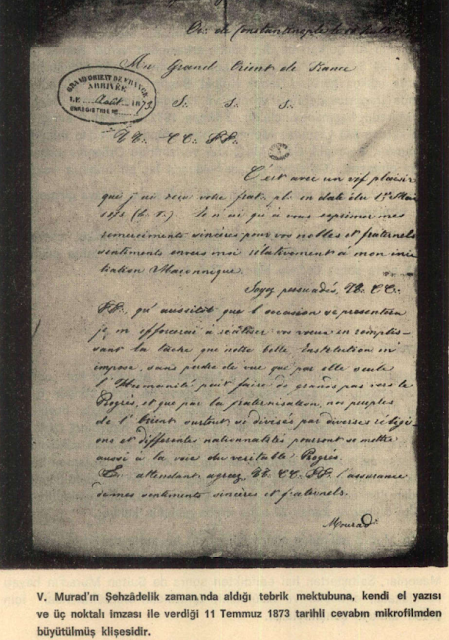 Or∴ de Constantinople le
Au Grand Orient de France
GRAND ORIENT DE FRANCE
ARRIVÉE
LE Août 1873
ENREGISTRÉE Nº
S∴ S∴ S∴
TT∴ CC∴ FF∴
C'est avec un vif plaisir
que j'ai reçu votre frat∴ pl∴ en date du 15 Mai
1873 (è∴ v∴) Je n'ai qu'à vous exprimer mes
remerciments sincères pour vos nobles et fraternels
sentiments envers moi relativement à mon ini-
tiation Maçonnique.
Soyez persuadés, TT∴ CC∴
FF∴ qu'aussitôt que l'occasion se présentera
je m'efforcerai à réaliser vos vœux en remplis-
sant la tâche que notre belle Institution m'
impose, sans perdre de vue que par elle seule
l'Humanité peut faire de grands pas vers le
Progrès, et que par la fraternisation, nos peuples
de l'Orient surtout si divisés par diverses religi-
ons et différentes nationalités pourront se mettre
aussi à la voie du véritable Progrès.
En attendant agréez TT∴ CC∴ FF∴ l'assurance
de mes sentiments sincères et fraternels.
Mourad
V. Murad'ın Şehzâdelik zamanında aldığı tebrik mektubuna, kendi el yazısı
ve üç noktalı imzası ile verdiği 11 Temmuz 1873 tarihli cevabın mikrofilmden
büyütülmüş klişesidir.